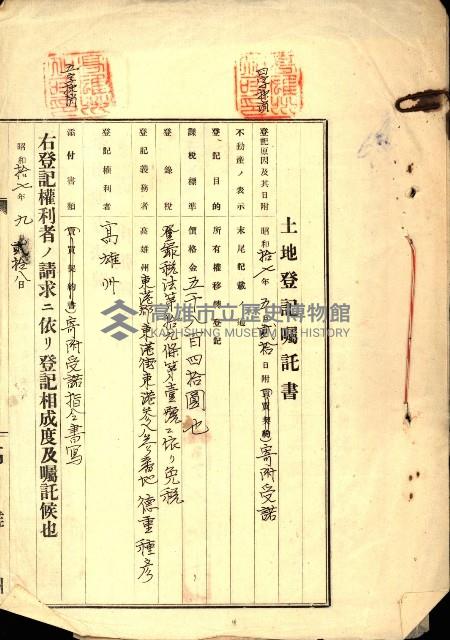 土地登記囑託書
登記原因及其日附 昭和拾七年五月貳拾日附(賣買契約)寄附受諾
不動產ノ表示 末尾記載ノ通
登記目的 所有權移轉登記
課稅標準價格 金五千 百四拾圓也
登錄稅 登錄稅法第 條第壹號ニ依リ免稅
登記義務者 高雄州東港郡東港街東港 番地 德重種彦
登記權利者 高雄州
添付書類 (賣買契約書)寄附受諾指令書寫
右登記權利者ノ請求ニ依リ登記相成度及囑託候也
昭和拾七年九月貳拾八日
高雄市立歷史博物館
KAOHSIUNG MUSEUM OF HISTORY